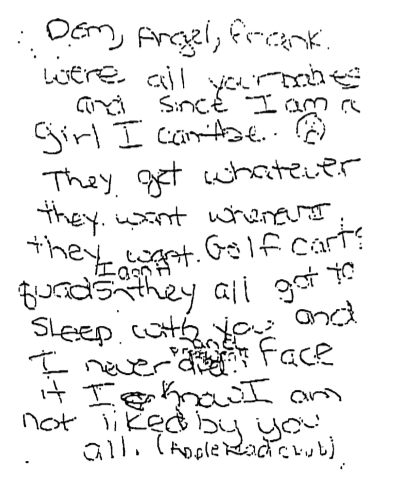 Dom, Angel, Frank.
were all your babies
and since I am a
girl I cant be..
They get whatever
they want whenever
they want. Golf carts
I dont
quads they all got to
sleep with you and
I never did! Face
it I know I am
not liked by you
all. (Applehead club)